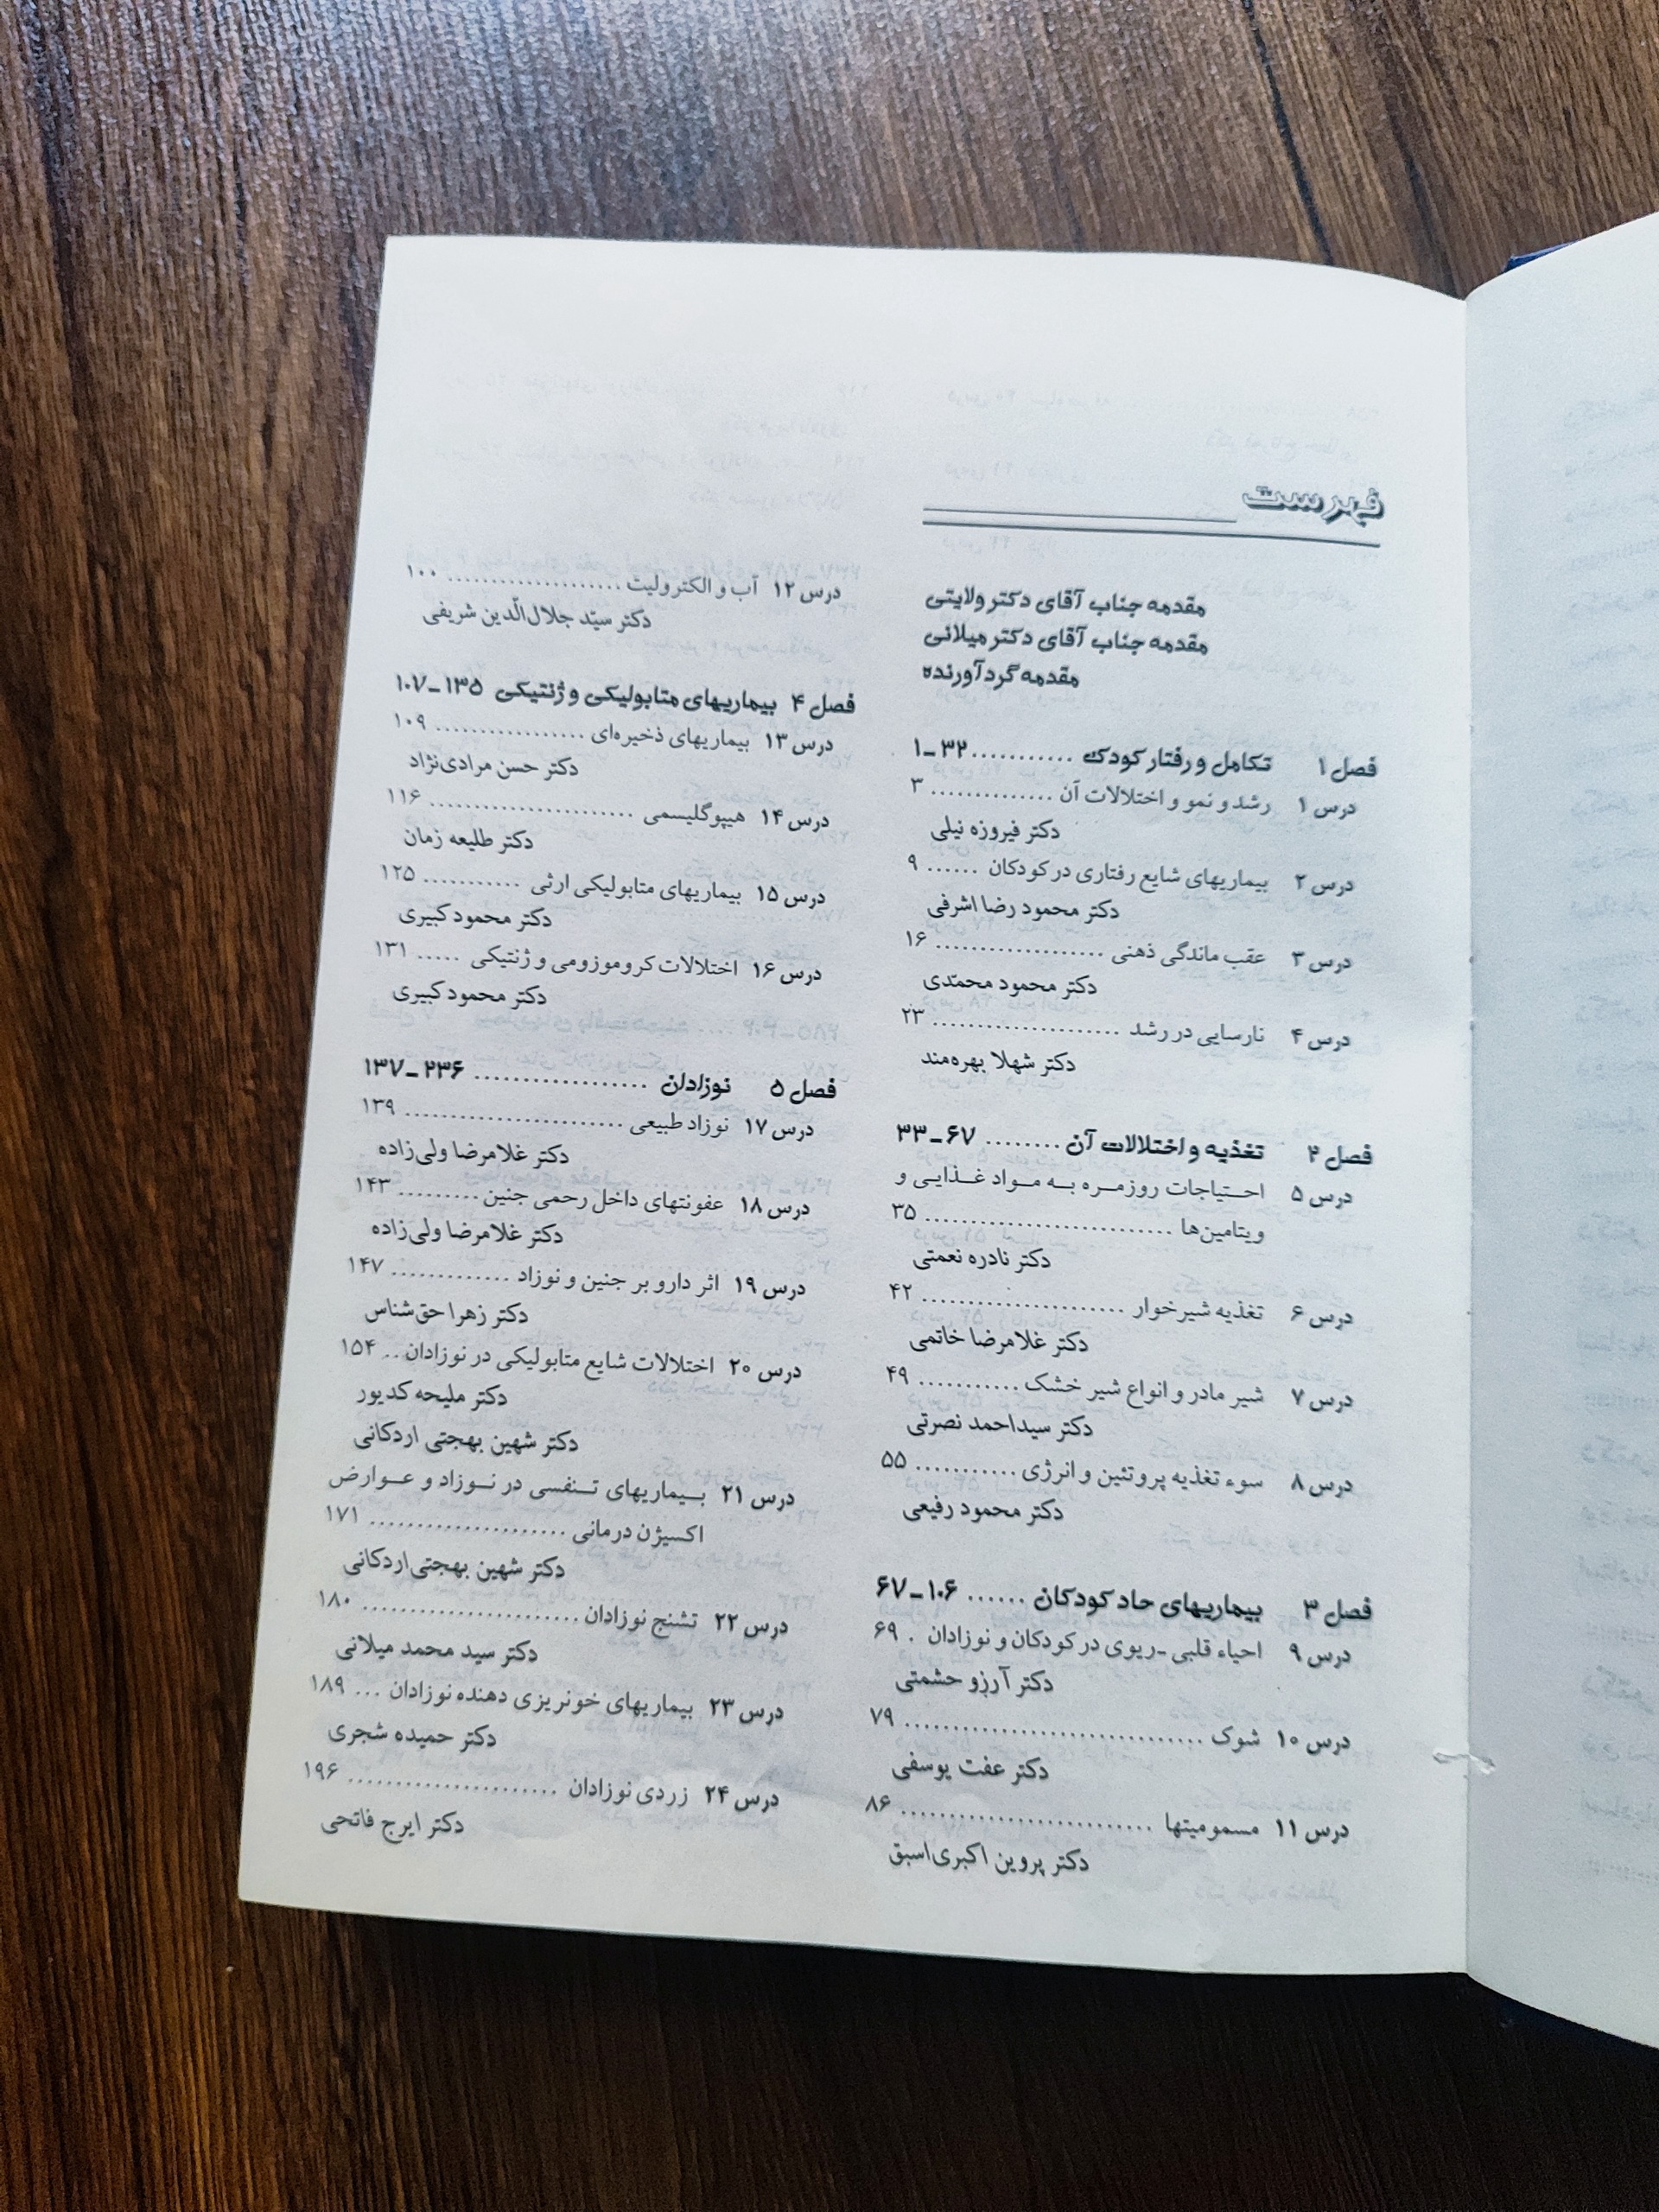 فهرست
مقدمه جناب آقای دکتر ولایتی
مقدمه جناب آقای دکتر میلانی
مقدمه گردآورنده
فصل ۱ تکامل و رفتار کودک ........... ۳۲ـ۱
درس ۱ رشد و نمو و اختلالات آن .............. ۳
دکتر فیروزه نیلی
درس ۲ بیماریهای شایع رفتاری در کودکان ...... ۹
دکتر محمود رضا اشرفی
درس ۳ عقب ماندگی ذهنی .................. ۱۶
دکتر محمود محمدّی
درس ۴ نارسایی در رشد .................... ۲۳
دکتر شهلا بهره‌مند
فصل ۲ تغذیه و اختلالات آن ........ ۶۷ـ۳۳
درس ۵ احـتیاجات روزمـره بـه مـواد غـذایـی و
ویتامین‌ها .......................... ۳۵
دکتر نادره نعمتی
درس ۶ تغذیه شیرخوار ...................... ۴۲
دکتر غلامرضا خاتمی
درس ۷ شیر مادر و انواع شیر خشک ........... ۴۹
دکتر سیداحمد نصرتی
درس ۸ سوء تغذیه پروتئین و انرژی ........... ۵۵
دکتر محمود رفیعی
فصل ۳ بیماریهای حاد کودکان ...... ۱۰۶ـ۶۷
درس ۹ احیاء قلبی ـ ریوی در کودکان و نوزادان . ۶۹
دکتر آرزو حشمتی
درس ۱۰ شوک ................................ ۷۹
دکتر عفت یوسفی
درس ۱۱ مسمومیتها ........................... ۸۶
دکتر پروین اکبری‌اسبق
درس ۱۲ آب و الکترولیت ................... ۱۰۰
دکتر سیّد جلال‌الّدین شریفی
فصل ۴ بیماریهای متابولیکی و ژنتیکی ۱۳۵ـ۱۰۷
درس ۱۳ بیماریهای ذخیره‌ای ................. ۱۰۹
دکتر حسن مرادی‌نژاد
درس ۱۴ هیپوگلیسمی ....................... ۱۱۶
دکتر طلیعه زمان
درس ۱۵ بیماریهای متابولیکی ارثی ........... ۱۲۵
دکتر محمود کبیری
درس ۱۶ اختلالات کروموزومی و ژنتیکی ..... ۱۳۱
دکتر محمود کبیری
فصل ۵ نوزادان ................... ۲۳۶ـ۱۳۷
درس ۱۷ نوزاد طبیعی ........................ ۱۳۹
دکتر غلامرضا ولی‌زاده
درس ۱۸ عفونتهای داخل رحمی جنین ......... ۱۴۳
دکتر غلامرضا ولی‌زاده
درس ۱۹ اثر دارو بر جنین و نوزاد ............. ۱۴۷
دکتر زهرا حق‌شناس
درس ۲۰ اختلالات شایع متابولیکی در نوزادان .. ۱۵۴
دکتر ملیحه کدیور
دکتر شهین بهجتی اردکانی
درس ۲۱ بـیماریهای تـنفسی در نـوزاد و عـوارض
اکسیژن درمانی ..................... ۱۷۱
دکتر شهین بهجتی‌اردکانی
درس ۲۲ تشنج نوزادان ....................... ۱۸۰
دکتر سید محمد میلانی
درس ۲۳ بیماریهای خونریزی دهنده نوزادان ... ۱۸۹
دکتر حمیده شجری
درس ۲۴ زردی نوزادان ....................... ۱۹۶
دکتر ایرج فاتحی